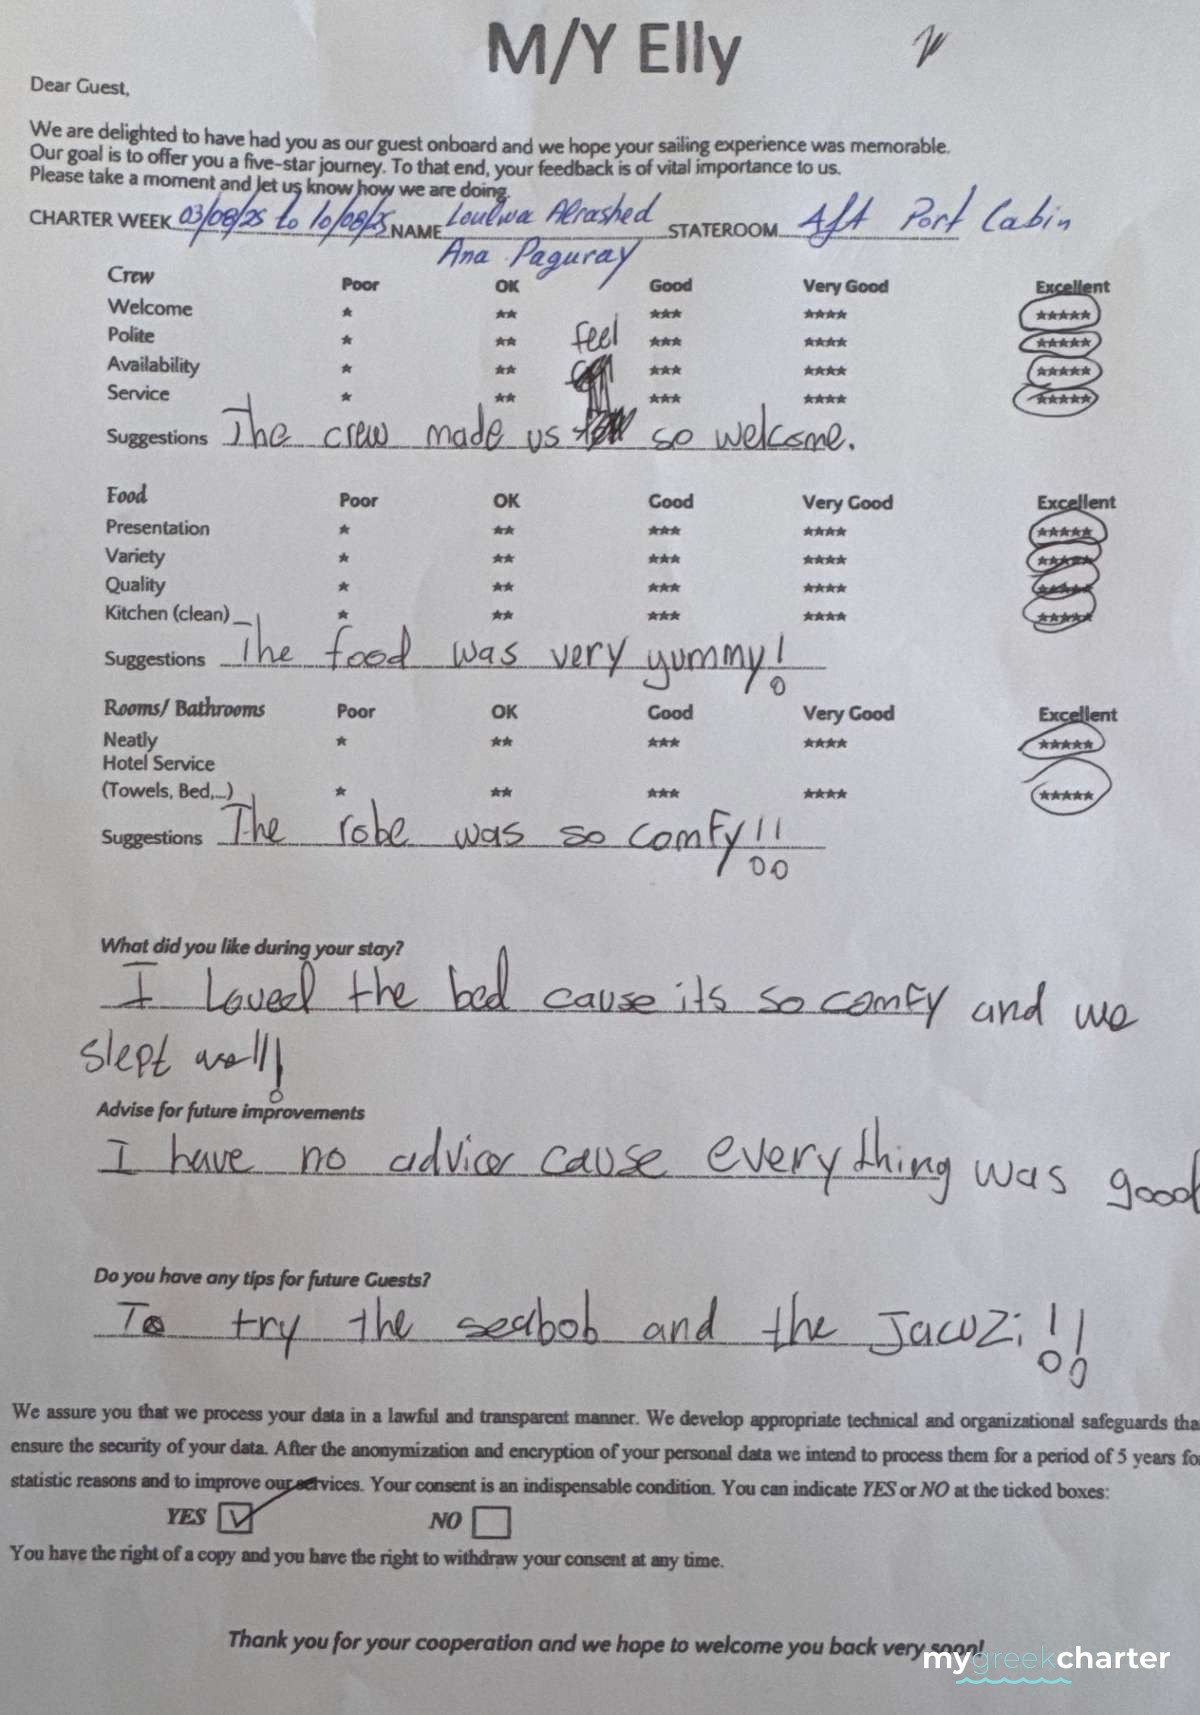 M/Y Elly
Dear Guest,
We are delighted to have had you as our guest onboard and we hope your sailing experience was memorable.
Our goal is to offer you a five-star journey. To that end, your feedback is of vital importance to us.
Please take a moment and let us know how we are doing.
CHARTER WEEK 03/08/25 to 10/08/25 NAME Loulwa Alrashed STATEROOM Aft Port Cabin
Ana Paguray
Crew Poor OK Good Very Good Excellent
Welcome ★ ★★ ★★★ ★★★★ ★★★★★
Polite ★ ★★ ★★★ ★★★★ ★★★★★
feel
Availability ★ ★★ ★★★ ★★★★ ★★★★★
Service ★ ★★ ★★★ ★★★★ ★★★★★
Suggestions The crew made us so welcome.
Food Poor OK Good Very Good Excellent
Presentation ★ ★★ ★★★ ★★★★ ★★★★★
Variety ★ ★★ ★★★ ★★★★ ★★★★★
Quality ★ ★★ ★★★ ★★★★ ★★★★★
Kitchen (clean) ★ ★★ ★★★ ★★★★ ★★★★★
Suggestions The food was very yummy!
Rooms/ Bathrooms Poor OK Good Very Good Excellent
Neatly ★ ★★ ★★★ ★★★★ ★★★★★
Hotel Service
(Towels, Bed,...) ★ ★★ ★★★ ★★★★ ★★★★★
Suggestions The robe was so comfy!!
What did you like during your stay?
I loved the bed cause its so comfy and we
slept well!
Advise for future improvements
I have no advice cause everything was good
Do you have any tips for future Guests?
To try the seabob and the Jacuzi!!
We assure you that we process your data in a lawful and transparent manner. We develop appropriate technical and organizational safeguards tha
ensure the security of your data. After the anonymization and encryption of your personal data we intend to process them for a period of 5 years fo
statistic reasons and to improve our services. Your consent is an indispensable condition. You can indicate YES or NO at the ticked boxes:
YES NO
You have the right of a copy and you have the right to withdraw your consent at any time.
Thank you for your cooperation and we hope to welcome you back very soon!
mygreekcharter